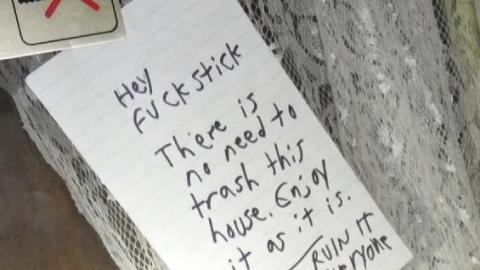 Hey
FUckstick
There is
no need to
trash this
house. Enjoy
it as it is.
RUIN IT
everyone